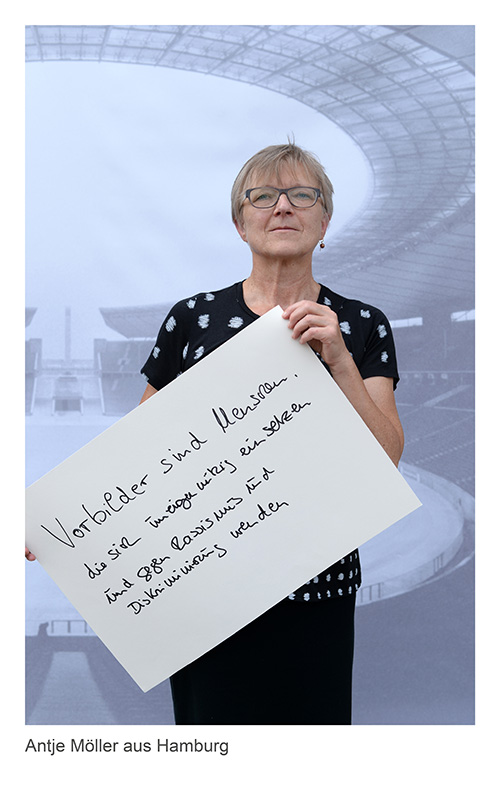 Vorbilder sind Menschen,
die sich uneigennützig einsetzen
und gegen Rassismus und
Diskriminierung wenden
Antje Möller aus Hamburg